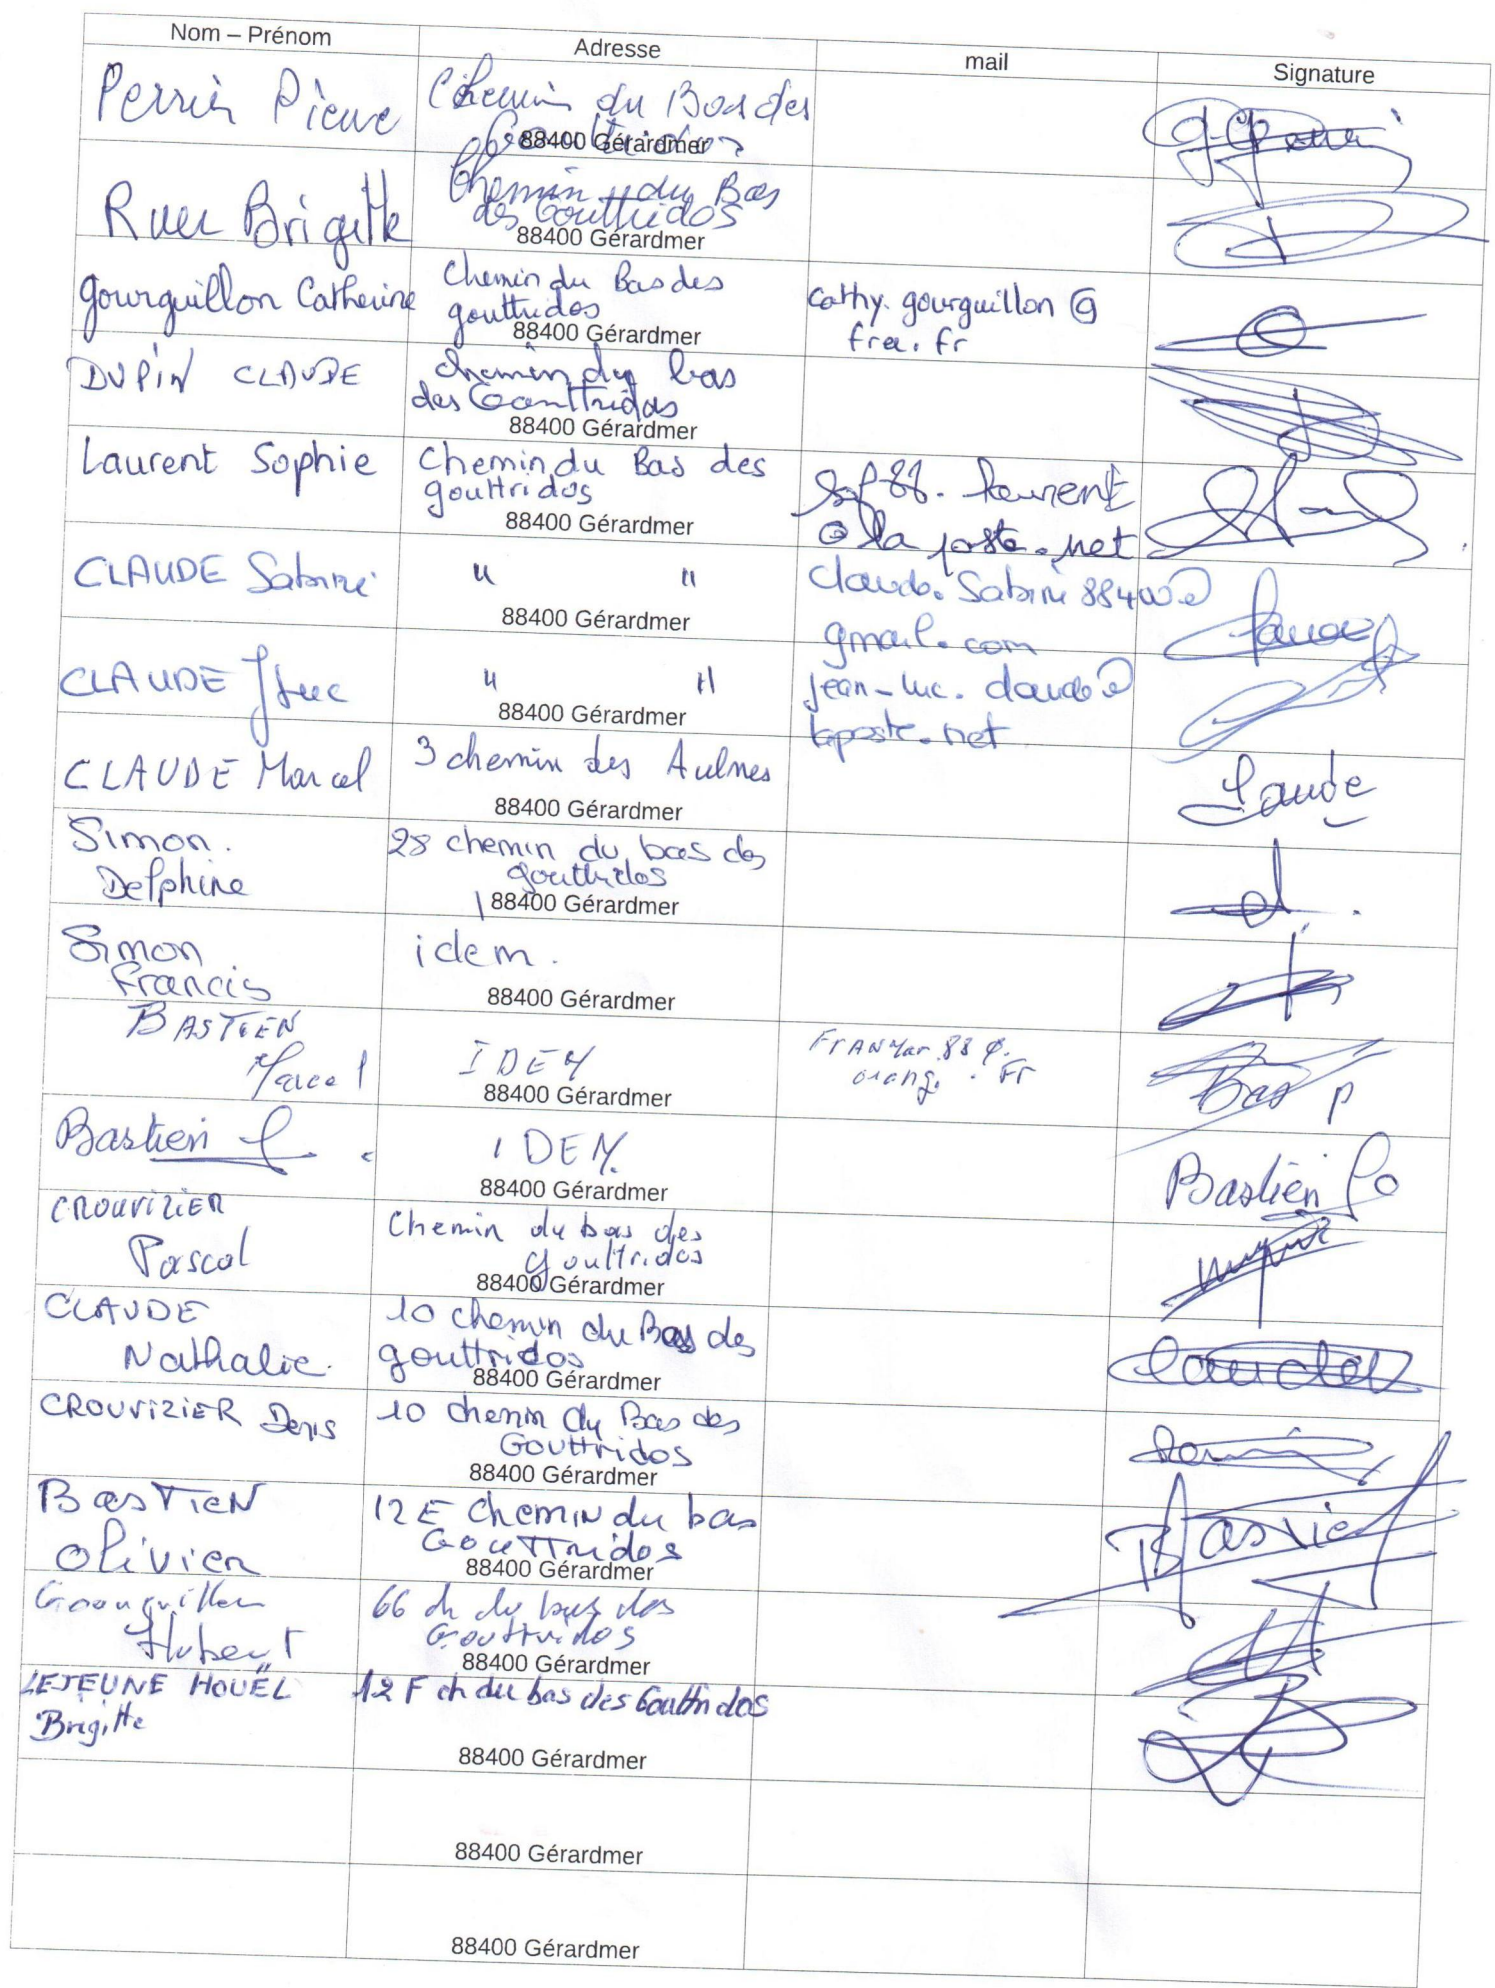 Nom – Prénom Adresse mail Signature
Perrin Pierre Chemin du Bas des
88400 Gérardmer
Ruer Brigitte Chemin du Bas
des Gouttridos
88400 Gérardmer
Gourguillon Catherine Chemin du Bas des
gouttridos
88400 Gérardmer
cathy.gourguillon @
free.fr
DUPIN CLAUDE chemin du bas
des Gouttridos
88400 Gérardmer
Laurent Sophie Chemin du Bas des
gouttridos
88400 Gérardmer
sof88.laurent
@laposte.net
CLAUDE Sabine " "
88400 Gérardmer
claude.sabine88400@
gmail.com
CLAUDE JLuc " "
88400 Gérardmer
jean-luc.claude@
laposte.net
CLAUDE Marcel 3 chemin des Aulnes
88400 Gérardmer
Claude
Simon
Delphine
28 chemin du bas des
gouttridos
88400 Gérardmer
Simon
Francis
idem.
88400 Gérardmer
BASTIEN
Marcel
IDEM
88400 Gérardmer
FrANMar.88@
orange.Fr
Bastien
IDEM.
88400 Gérardmer
Bastien
CROUVIZIER
Pascal
Chemin du bas des
Gouttridos
88400 Gérardmer
CLAUDE
Nathalie.
10 chemin du Bas des
gouttridos
88400 Gérardmer
CROUVIZIER Denis 10 chemin du Bas des
Gouttridos
88400 Gérardmer
BasTieN
Olivier
12E Chemin du bas
Gouttridos
88400 Gérardmer
Bastien
Gourguillon
Hubert
66 ch du bas des
Gouttridos
88400 Gérardmer
LEJEUNE HOUËL
Brigitte
12 F ch du bas des Gouttridos
88400 Gérardmer
88400 Gérardmer
88400 Gérardmer